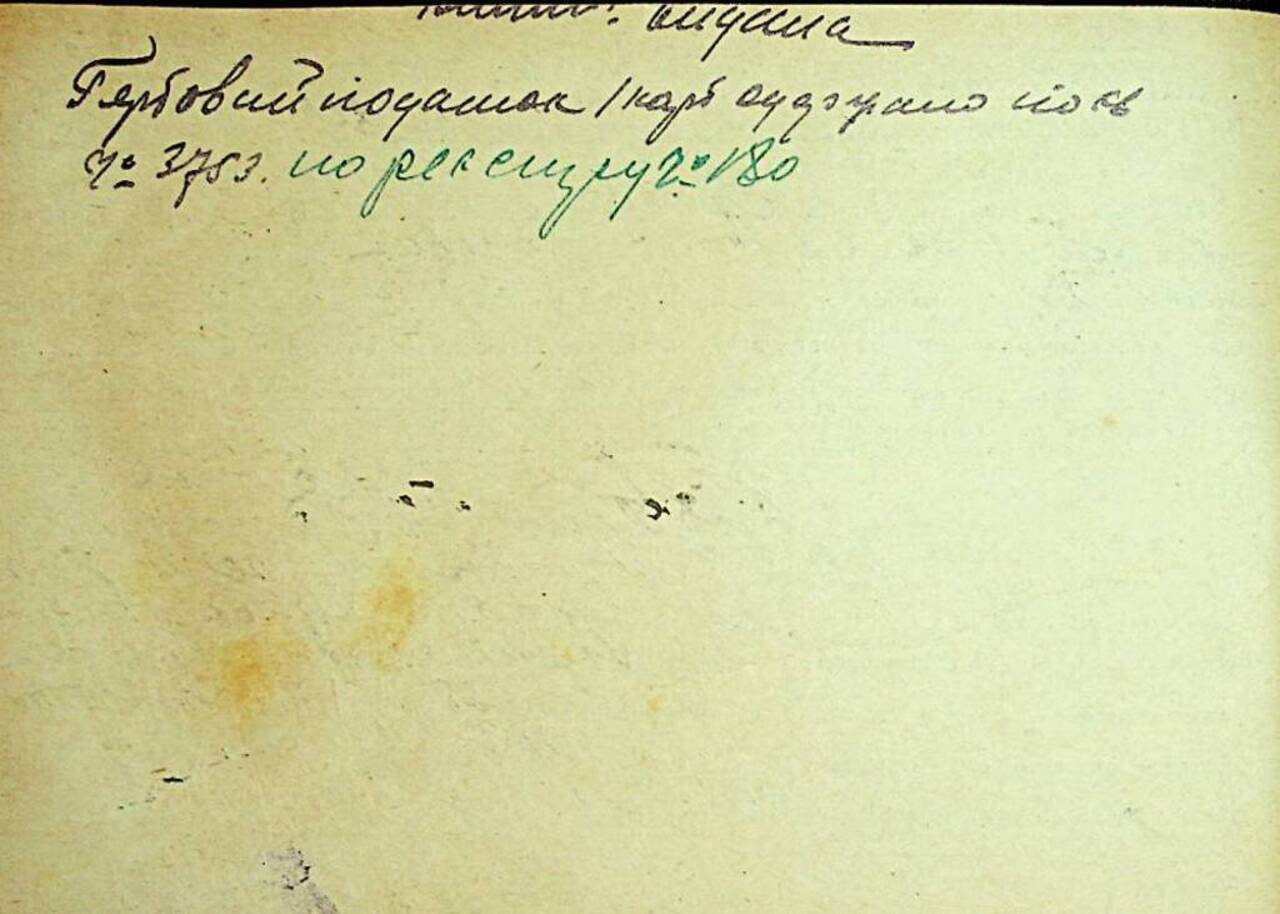 видана
Гербовий податок 1 карб одержано по кв
№ 3753. по реєстру № 180